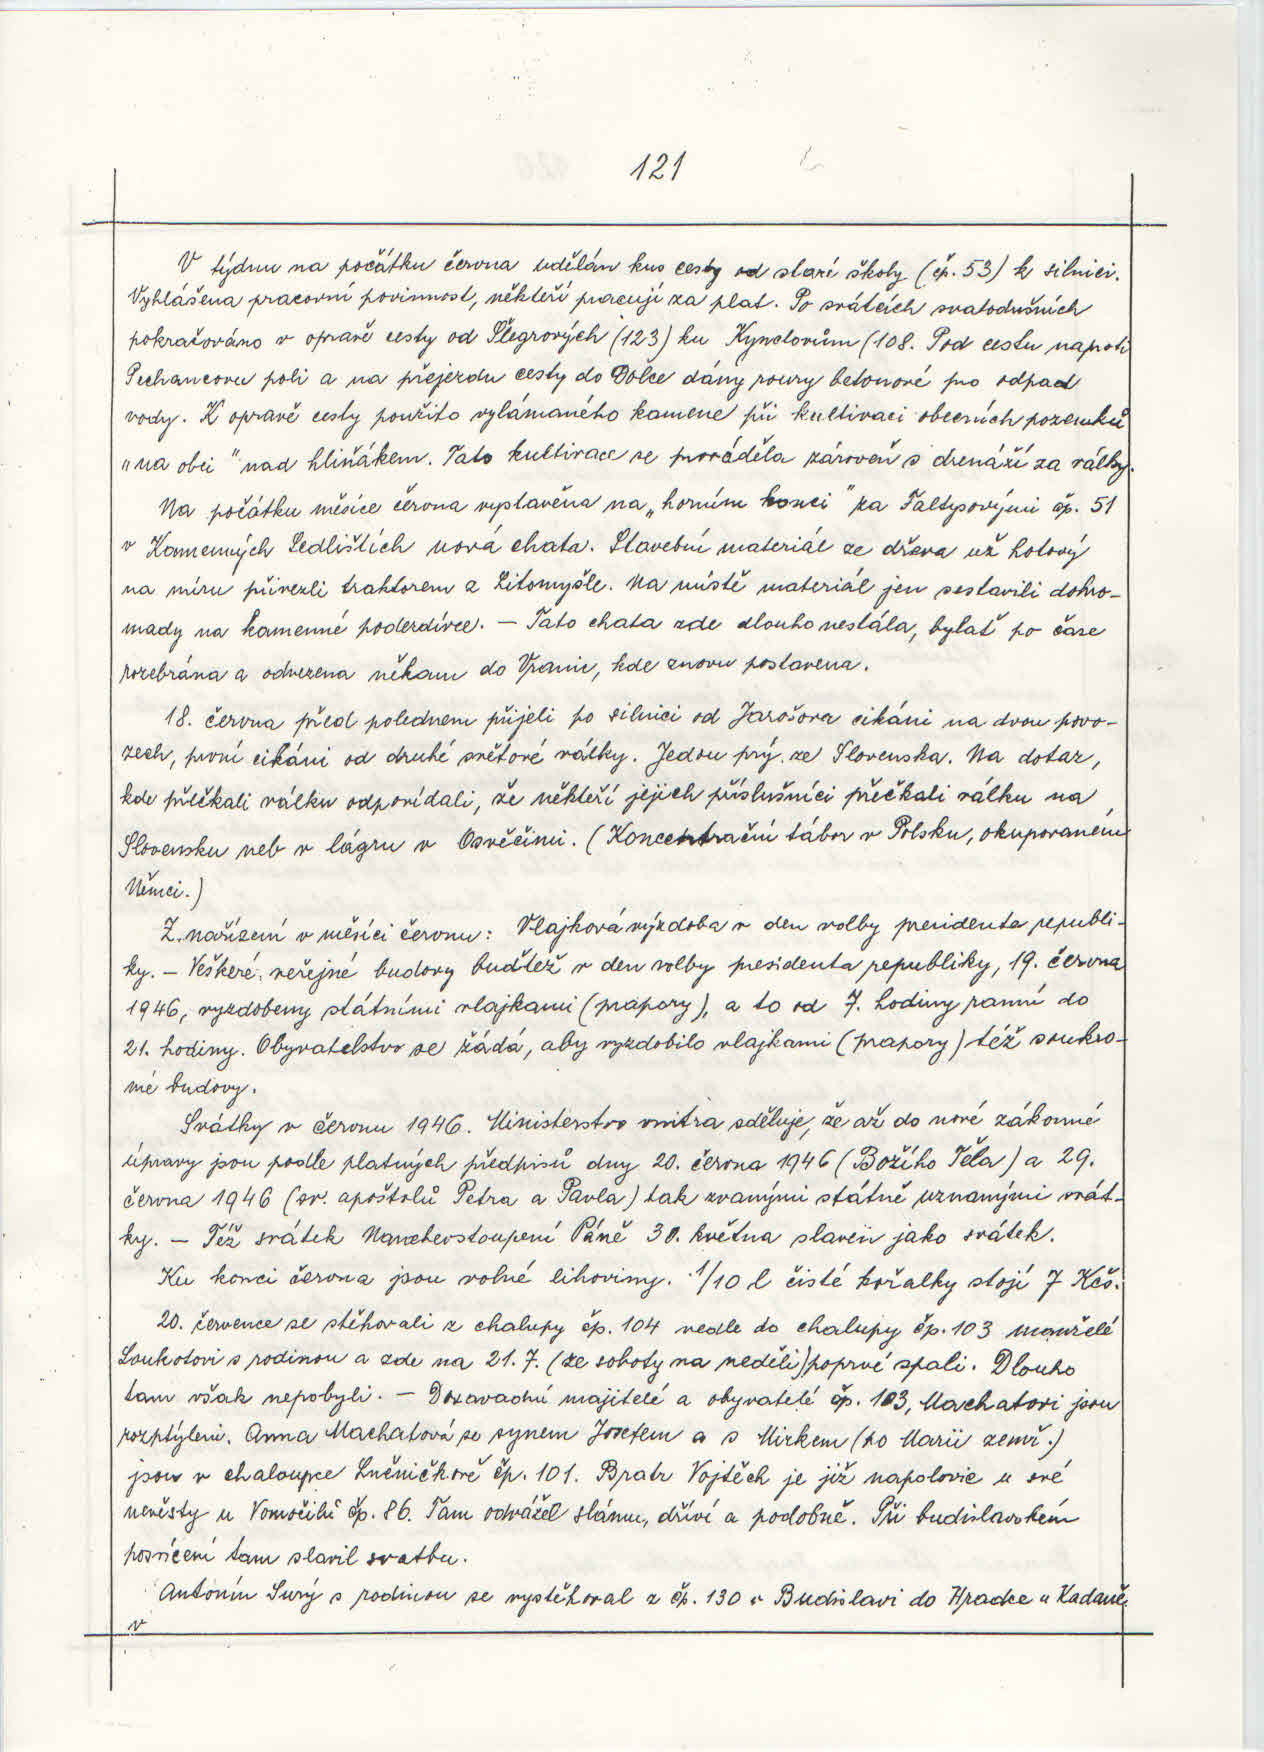 121
V týdnu na počátku června udělán kus cesty od staré školy (čp. 53) k silnici.
Vyhlášena pracovní povinnost, někteří pracují za plat. Po svátcích svatodušních
pokračováno v opravě cesty od Šlegrových (123) ku Kynclovům (108. Pod cestu naproti
Pechancovu poli a na přejezdu cesty do Dolce dány roury betonové pro odpad
vody. K opravě cesty použito vylámaného kamene při kultivaci obecních pozemků
„na obci" nad hliňákem. Tato kultivace se prováděla zároveň s drenáží za války.
Na počátku měsíce června vystavěna na „horním konci" za Faltysovými čp. 51
v Kamenných Sedlištích nová chata. Stavební materiál ze dřeva už hotový
na míru přivezli traktorem z Litomyšle. Na místě materiál jen sestavili dohro-
mady na kamenné podezdívce. – Tato chata zde dlouho nestála, bylať po čase
rozebrána a odvezena někam do Vranic, kde znovu postavena.
18. června před polednem přijeli po silnici od Jarošova cikáni na dvou povo-
zech, první cikáni od druhé světové války. Jedou prý ze Slovenska. Na dotaz,
kde přečkali válku odpovídali, že někteří jejich příslušníci přečkali válku na
Slovensku neb v lágru v Osvěčimi. (Koncentrační tábor v Polsku, okupovaném
Němci.)
Z nařízení v měsíci červnu: Vlajková výzdoba v den volby presidenta republi-
ky. – Veškeré veřejné budovy buďtež v den volby presidenta republiky, 19. června
1946, vyzdobeny státními vlajkami (prapory), a to od 7. hodiny ranní do
21. hodiny. Obyvatelstvo se žádá, aby vyzdobilo vlajkami (prapory) též soukro-
mé budovy.
Svátky v červnu 1946. Ministerstvo vnitra sděluje, že až do nové zákonné
úpravy jsou podle platných předpisů dny 20. června 1946 (Božího Těla) a 29.
června 1946 (sv. apoštolů Petra a Pavla) tak zvanými státně uznanými svát-
ky. – Též svátek Nanebevstoupení Páně 30. května slaven jako svátek.
Ku konci června jsou volné lihoviny. 1/10 l čisté kořalky stojí 7 Kčs.
20. července se stěhovali z chalupy čp. 104 vedle do chalupy čp. 103 manželé
Loukotovi s rodinou a zde na 21. 7. (ze soboty na neděli) poprvé spali. Dlouho
tam však nepobyli. – Dosavadní majitelé a obyvatelé čp. 103, Machatovi jsou
rozptýleni. Anna Machatová se synem Josefem a s Mirkem (po Marii zemř.)
jsou v chaloupce Lněničkově čp. 101. Bratr Vojtěch je již napolovic u své
nevěsty u Vomočilů čp. 86. Tam odvážel slámu, dříví a podobně. Při budislavském
posvícení tam slavil svatbu.
Antonín Surý s rodinou se vystěhoval z čp. 130 v Budislavi do Hradce u Kadaně
v